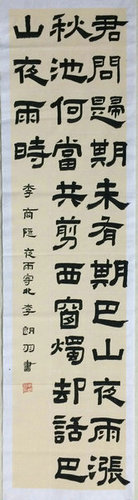 君問歸期未有期巴山夜雨漲
秋池何當共剪西窗燭却話巴
山夜雨時
李商隐夜雨寄北李朗羽書